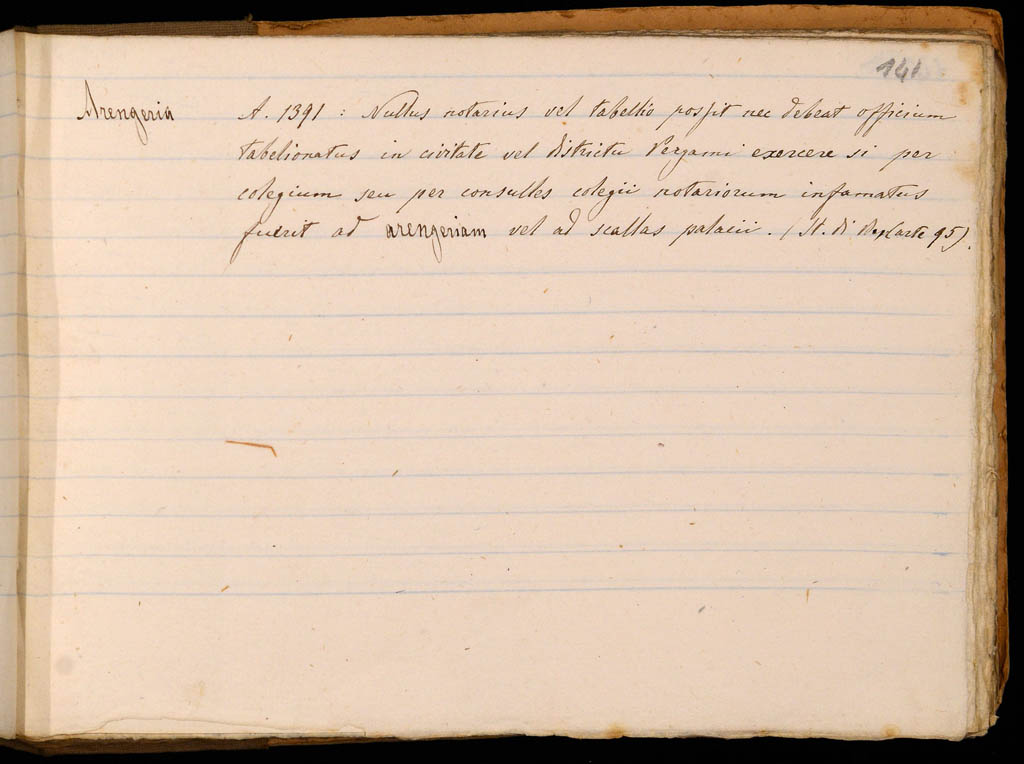 141
Arengeria A. 1391 : Nullus notarius vel tabellio possit nec debeat officium
tabelionatus in civitate vel districtu Pergami exercere si per
colegium seu per consulles colegii notariorum infamatus
fuerit ad arengeriam vel ad scallas palacii. (St. di carte 95).